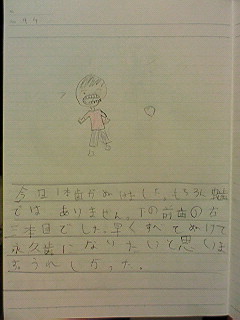 今日1本歯がぬけました。もちろん乳歯
では ありません。下の前歯の右
三本目でした。早くすべてぬけて
永久歯に なりたいと思いま
す。うれしかった。